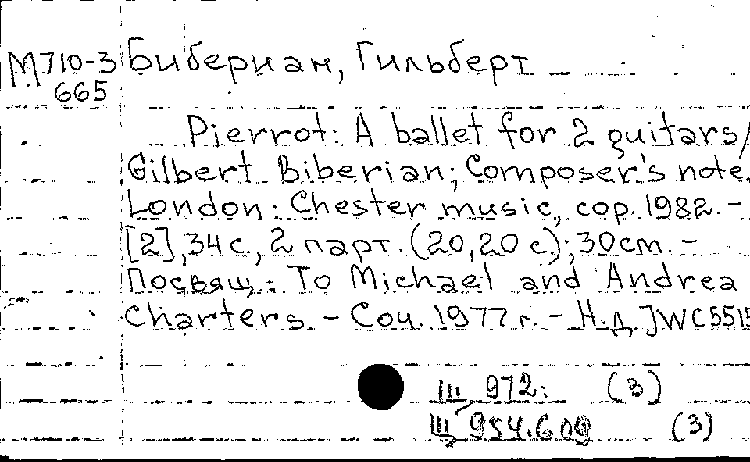 М710-3 Бибериан, Гильберт
665
Pierrot: A ballet for 2 guitars/
Gilbert Biberian; Composer's note.
London: Chester music, cop. 1982. –
[2], 34 с, 2 парт. (20,20 с); 30 cm. –
Посвящ.: To Michael and Andrea
Charters. – Соч. 1977 г. – Н.д. JWC5515
Ш 972: (3)
Щ 954.609 (3)